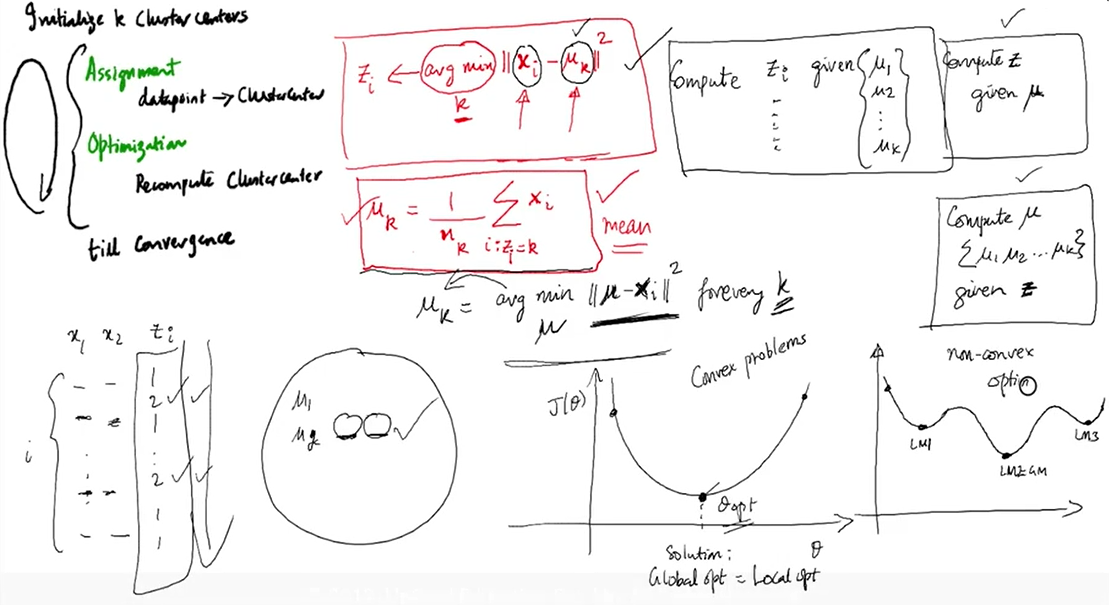 Initialize k Cluster centers
Assignment
datapoint → Clustercenter
Optimization
Recompute Clustercenter
till Convergence
z_i ← arg min_k ||x_i - μ_k||^2
μ_k = 1/n_k Σ_{i:z_i=k} x_i
mean
μ_k = arg min_μ ||μ-x_i||^2 forevery k
Compute z_i given {μ_1
μ_2
⋮
μ_k}
Compute z
given μ
Compute μ
{μ_1 μ_2 ... μ_k}
given z
x_1 x_2 z_i
i
1
2
1
⋮
2
1
1
μ_1
J(θ)
Convex problems
θ_opt
θ
Solution:
Global opt = Local opt
non-convex
optim
LM1
LM2=GM
LM3